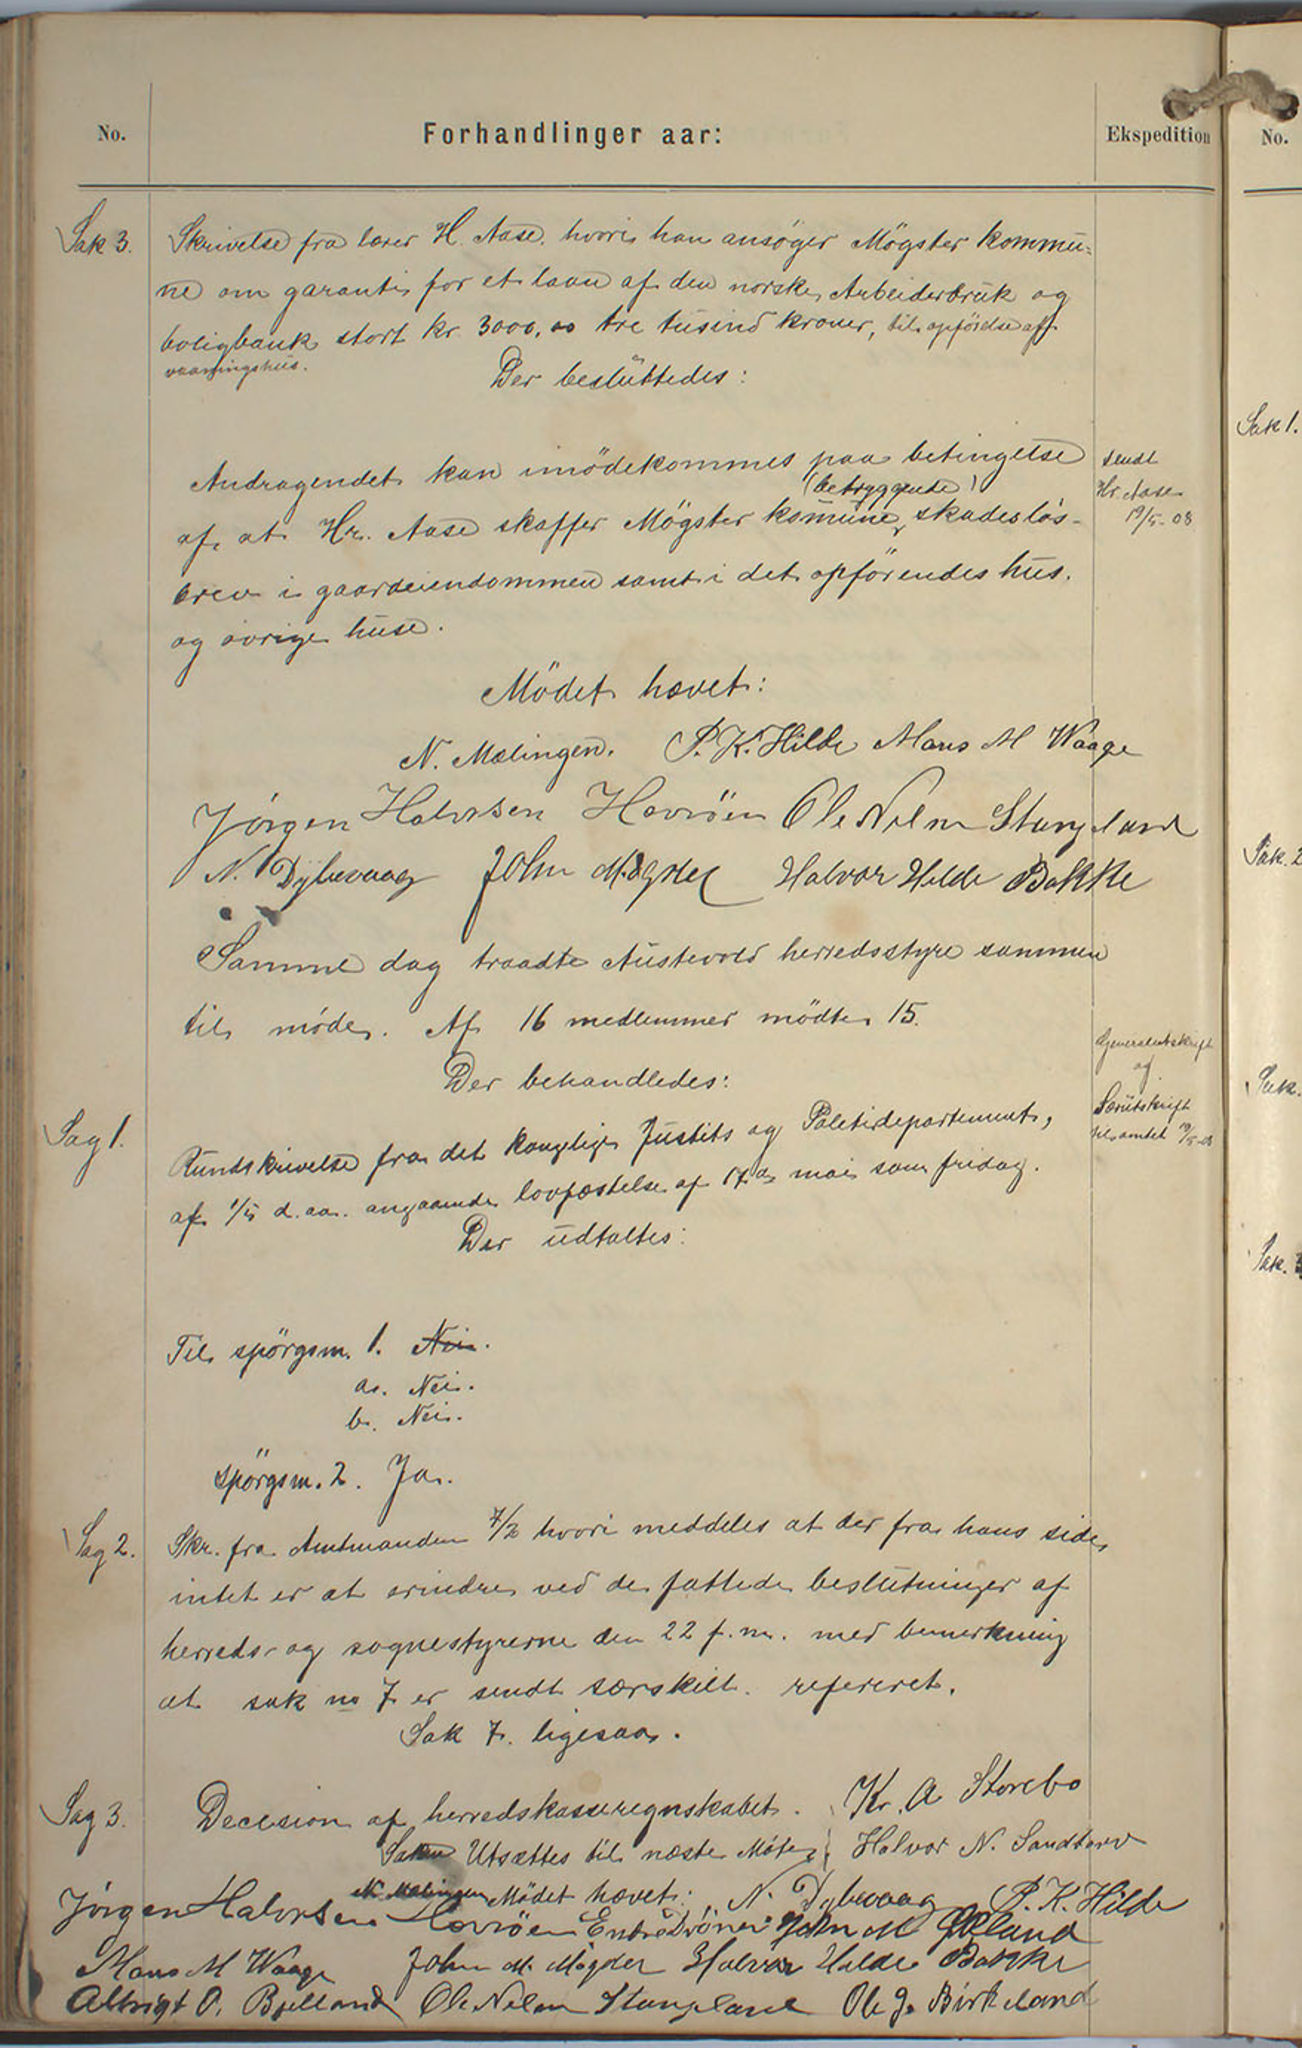 No. Forhandlinger aar: Ekspedition No.
Sak 3. Skrivelse fra lærer H. Aase. hvori han ansøger Møgster kommu-
ne om garanti for et laan af den norske Arbeiderbruk og
boligbank stort kr. 3000,00 tre tusind kroner, til opførdse af
vaaningshus.
Der besluttedes:
Andragendet kan imødekommes paa betingelse
(betryggende)
af, at Hr. Aase skaffer Møgster komune, skadesløs-
brev i gaardeiendommen samt i det opførendes hus.
og øvrige huse.
sendt
Hr. Aase
19/5-08
Mödet hævet:
N. Mælingen. P. K. Hilde Mons M Waage
Jörgen Halvorsen Hovröen Ole Nilsen Stangeland
N. Dybevaag John M. Møgster Halvor Hilde Bakke
Samme dag traadte Austevold herredsstyre sammen
til møde. Af 16 medlemmer mödte 15.
Der behandledes:
Generalutskrift
og
Særutskrift
til amtet 19/5-08
Sag 1. Rundskrivelse fra det kongelige Justits og Politidepartement,
af 1/5 d. aa. angaaende lovfæstelse af 17de mai som fridag.
Der udtaltes:
Til spörgsm. 1. Nei.
a. Nei.
b. Nei.
spörgsm. 2. Ja.
Sag 2. Skr. fra Amtmanden 7/2 hvori meddeles at der fra hans side
intet er at erindre ved de fattede beslutninger af
herreds- og sognestyrerne den 22 f. m. med bemerkning
at sak no 7 er sendt særskilt. refereret.
Sak 7. ligesaa.
Sag 3. Decision af herredskasseregnskabet. Kr. A Storebø
Saken Utsættes til næste Møte Halvor N. Sandtorv
N. Mælingen Mödet hævet: N. Dybevaag P. K. Hilde
Jörgen Halvorsen Hovröen Endre Drönen John M Økland
Mons M Waage John M. Møgster Halvor Hilde Bakke
Albrigt O. Bjelland Ole Nilsen Stangeland Ole J. Birkeland
Sak 1.
Sak. 2
Sak.
Sak.